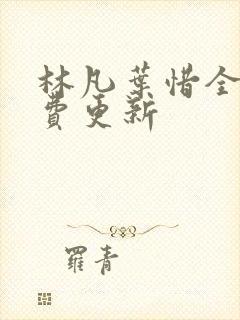 林凡葉惜全
費更新
羅青